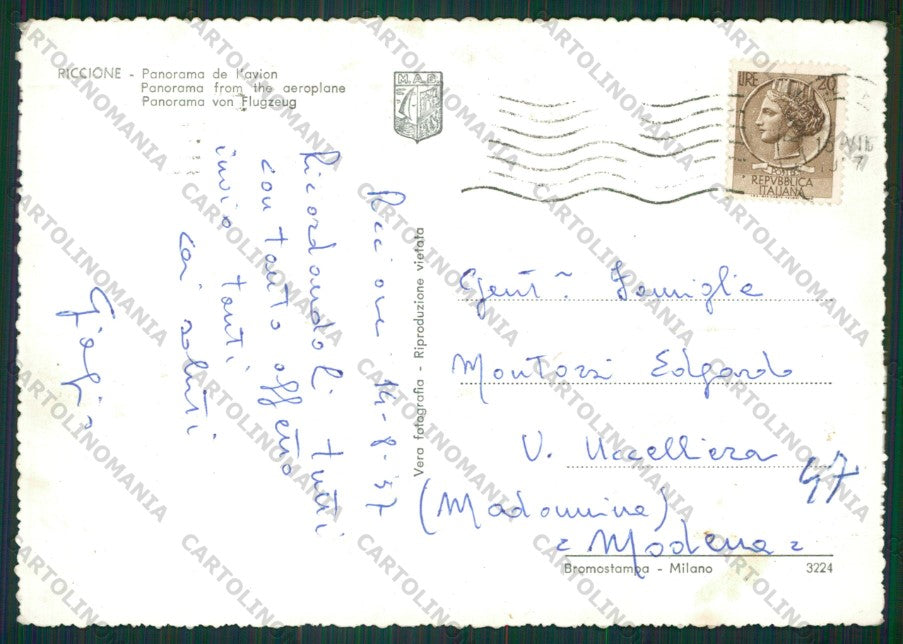 RICCIONE - Panorama de l'avion
Panorama from the aeroplane
Panorama von Flugzeug
M.A.F.
LIRE 20
POSTE
REPVBBLICA
ITALIANA
Riccione 14-8-57
Ricordandoli tutti
con tanto affetto
invio tanti
cari saluti
Vera fotografia - Riproduzione vietata
Gent. Famiglia
Montorsi Edgardo
V. Uccelliera 47
(Madonnina)
= Modena =
Bromostampa - Milano 3224
CARTOLINOMANIA